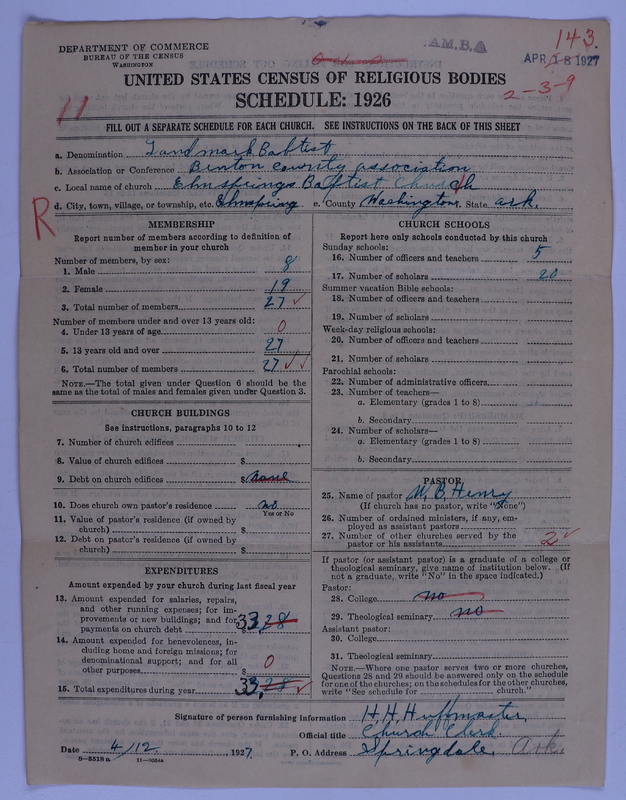 143.
A.M.B.A
APR 18 1927
2-3-9
11
R
DEPARTMENT OF COMMERCE
BUREAU OF THE CENSUS
WASHINGTON
UNITED STATES CENSUS OF RELIGIOUS BODIES
SCHEDULE: 1926
FILL OUT A SEPARATE SCHEDULE FOR EACH CHURCH. SEE INSTRUCTIONS ON THE BACK OF THIS SHEET
a. Denomination Landmark Baptist
b. Association or Conference Benton county association
c. Local name of church Elmsprings Baptist Church
d. City, town, village, or township, etc. Elmspring e. County Washington State Ark.
MEMBERSHIP
Report number of members according to definition of
member in your church
Number of members, by sex:
1. Male 8
2. Female 19
3. Total number of members 27
Number of members under and over 13 years old:
4. Under 13 years of age 0
5. 13 years old and over 27
6. Total number of members 27
NOTE.—The total given under Question 6 should be the
same as the total of males and females given under Question 3.
CHURCH BUILDINGS
See instructions, paragraphs 10 to 12
7. Number of church edifices
8. Value of church edifices $
9. Debt on church edifices $ none
10. Does church own pastor's residence no
Yes or No
11. Value of pastor's residence (if owned by
church) $
12. Debt on pastor's residence (if owned by
church) $
EXPENDITURES
Amount expended by your church during last fiscal year
13. Amount expended for salaries, repairs,
and other running expenses; for im-
provements or new buildings; and for
payments on church debt $ 33,28
14. Amount expended for benevolences, in-
cluding home and foreign missions; for
denominational support; and for all
other purposes $ 0
15. Total expenditures during year $ 33,28
CHURCH SCHOOLS
Report here only schools conducted by this church
Sunday schools:
16. Number of officers and teachers 5
17. Number of scholars 20
Summer vacation Bible schools:
18. Number of officers and teachers
19. Number of scholars
Week-day religious schools:
20. Number of officers and teachers
21. Number of scholars
Parochial schools:
22. Number of administrative officers
23. Number of teachers—
a. Elementary (grades 1 to 8)
b. Secondary
24. Number of scholars—
a. Elementary (grades 1 to 8)
b. Secondary
PASTOR
25. Name of pastor W. B. Henry
(If church has no pastor, write "None")
26. Number of ordained ministers, if any, em-
ployed as assistant pastors
27. Number of other churches served by the
pastor or his assistants 2
If pastor (or assistant pastor) is a graduate of a college or
theological seminary, give name of institution below. (If
not a graduate, write "No" in the space indicated.)
Pastor:
28. College no
29. Theological seminary no
Assistant pastor:
30. College
31. Theological seminary
NOTE.—Where one pastor serves two or more churches,
Questions 28 and 29 should be answered only on the schedule
for one of the churches; on the schedules for the other churches,
write "See schedule for church."
Signature of person furnishing information H. H. Huffmaster
Official title Church Clerk.
Date 4/12, 1927. P. O. Address Springdale, Ark.
8-5518 a 11-9054a